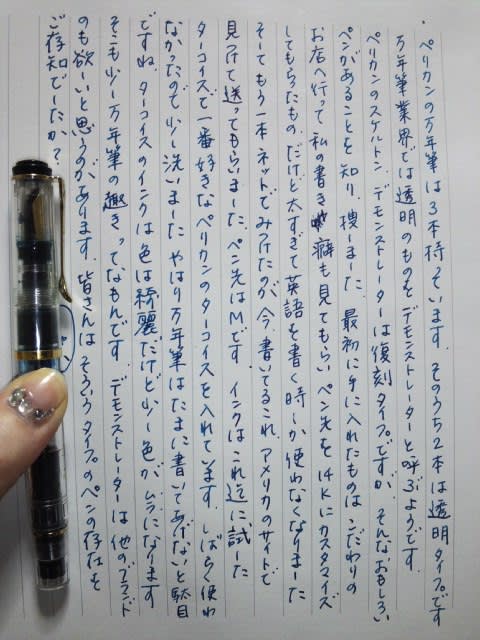 ペリカンの万年筆は3本持っています。そのうち2本は透明タイプです
万年筆業界では透明のものをデモンストレーターと呼ぶようです。
ペリカンのスケルトン、デモンストレーターは復刻タイプですが、そんなおもしろい
ペンがあることを知り、捜しました。最初に手に入れたものはこだわりの
お店へ行って私の書き癖も見てもらいペン先を14Kにカスタマイズ
してもらったもの。だけど太すぎて英語を書く時しか使わなくなりました
そしてもう一本ネットでみつけたのが、今、書いてるこれ。アメリカのサイトで
見つけて送ってもらいました。ペン先はMです。インクはこれ迄に試した
ターコイズで一番好きなペリカンのターコイズを入れています。しばらく使わ
なかったので少し洗いました。やはり万年筆はたまに書いてあげないと駄目
ですね。ターコイズのインクは色は綺麗だけど少し色がムラになります
そこも少し万年筆の趣きってなもんです。デモンストレーターは他のブランド
のも欲しいと思うのがあります。皆さんはそういうタイプのペンの存在を
ご存知でしたか？